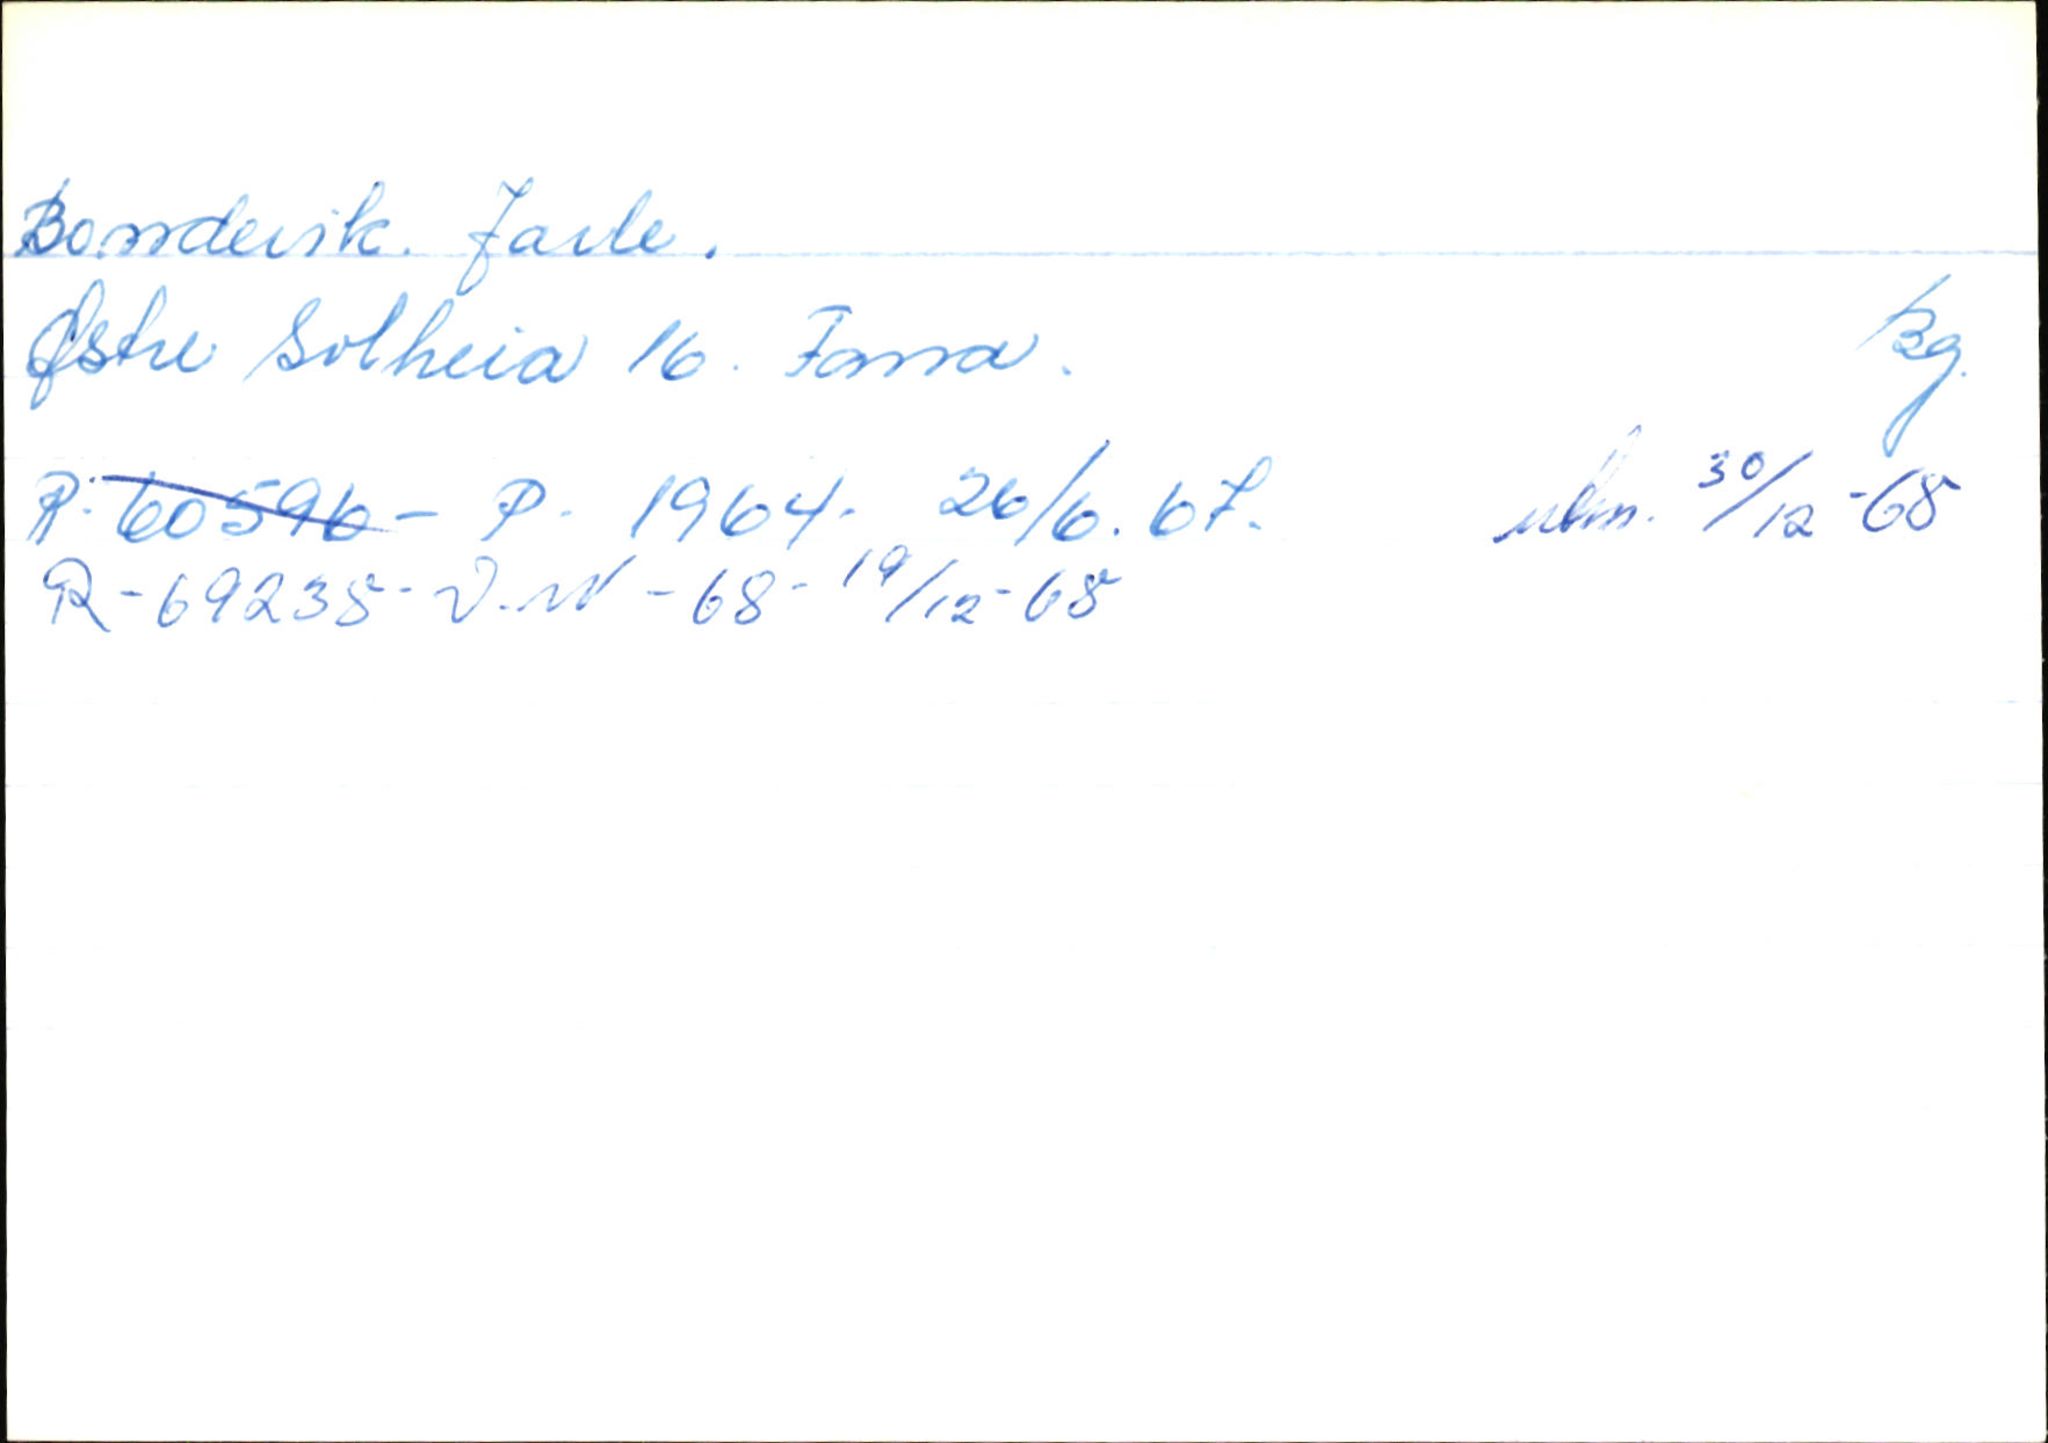 Bondevik. Jarle.
Østre Solheia 16. Fana. Bg.
R. 60596 - P. 1964. 26/6. 67. 30/12-68
R-69238- V.W -68- 19/12-68